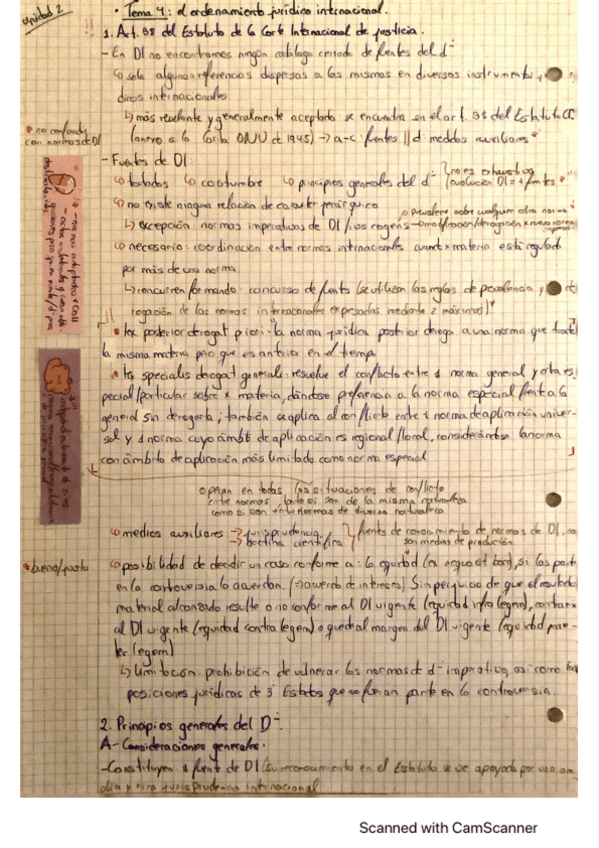 Unidad 2
· Tema 4: el ordenamiento jurídico internacional.
1. Art. 38 del Estatuto de la Corte Internacional de Justicia.
- En DI no encontramos ningún catálogo cerrado de fuentes del d⁻
↳ solo algunas referencias dispersas a las mismas en diversos instrumentos
internacionales
↳ más relevante y generalmente aceptado se encuentra en el art. 38 del Estatuto
(anexo a la Carta ONU de 1945) → a-c: fuentes || d: medios auxiliares
* no confundir
con normas de DI
- Fuentes de DI:
↳ tratados ↳ costumbre ↳ principios generales del d⁻
no es exhaustivo
evolución DI = + fuentes
↳ no existe ninguna relación de carácter jerárquico
○ Prevalece sobre cualquier otra norma
↳ excepción normas imperativas de DI / ius cogens
↳ necesario: coordinación entre normas internacionales cuando x materia está regulada
por más de una norma
↳ concurren formando: concurso de fuentes (se utilizan las reglas de prevalencia y
rogación de las normas internacionales expresadas mediante 2 máximas)
* lex posterior derogat priori: la norma jurídica posterior deroga a una norma que trate
la misma materia pero que es anterior en el tiempo
* lex specialis derogat generali: resuelve el conflicto entre 1 norma general y otra es
pecial/particular sobre x materia, dándose preferencia a la norma especial frente a la
general sin derogarla; también se aplica al conflicto entre 1 norma de aplicación univer-
sal y 1 norma cuyo ámbito de aplicación es regional/local, considerándose la norma
con ámbito de aplicación más limitado como norma especial
○ operan en todas las situaciones de conflicto
entre normas, tanto si son de la misma naturaleza
como si son entre normas de diversa naturaleza
↳ medios auxiliares → jurisprudencia
→ doctrina científica
fuentes de conocimiento de normas de DI, no
son medios de producción
* bueno/justo
↳ posibilidad de decidir un caso conforme a: la equidad (ex aequo et bono), si las partes
en la controversia lo acuerdan. (→ acuerdo de intereses) Sin perjuicio de que el resultado
material alcanzado resulte o no conforme al DI vigente (equidad infra legem), contrario
al DI vigente (equidad contra legem) o quede al margen del DI vigente (equidad prae-
ter legem)
↳ limitación: prohibición de vulnerar las normas de d⁻ imperativo, así como las
posiciones jurídicas de 3º Estados que no fueran parte en la controversia.
2. Principios generales del D⁻.
A- Consideraciones generales.
- Constituyen 1 fuente de DI (su reconocimiento en el Estatuto se ve apoyado por una am
plia y rica jurisprudencia internacional
Scanned with CamScanner